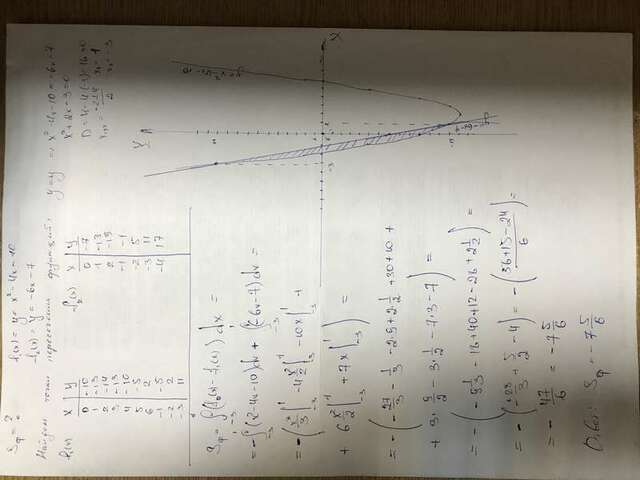 Sф = ? f₁(x) = y = x² - 4x - 10
f₂(x) = y = -6x - 7
Найдем точки пересечения функций: y = y => x² - 4x - 10 = -6x - 7
x² + 2x - 3 = 0
D = 4 - 4·(-3) = 16 > 0
x₁,₂ = (-2 ± 4)/2 x₁ = 1
x₂ = -3
f₁(x) x y f₂(x) x y
0 -10 0 -7
1 -13 1 -13
2 -14
3 -13 -1 -1
4 -10 -2 5
5 -5 -3 11
6 2 -4 17
-1 -5
-2 2
-3 11
Sф = ∫₋₃¹ (f₂(x) - f₁(x)) dx =
= -∫₋₃¹ (x² - 4x - 10) dx + ∫₋₃¹ (-6x - 7) dx =
= -( x³/3 |₋₃¹ - 4 x²/2 |₋₃¹ - 10x |₋₃¹ +
+ 6 x²/2 |₋₃¹ + 7x |₋₃¹ ) =
= -( -27/3 - 1/3 - 2·9 + 2·1/2 + 30 + 10 +
+ 3·9/2 - 3·1/2 - 7·3 - 7 ) =
= -( -9 1/3 - 18 + 40 + 12 - 28 + 2 1/2 ) =
= -( -28/3 + 5/2 - 4 ) = -( (56 + 15 - 24)/6 ) =
= - 47/6 = -7 5/6
Ответ: Sф = -7 5/6
Y
X
-3
y = x² - 4x - 10
y = -6x - 7